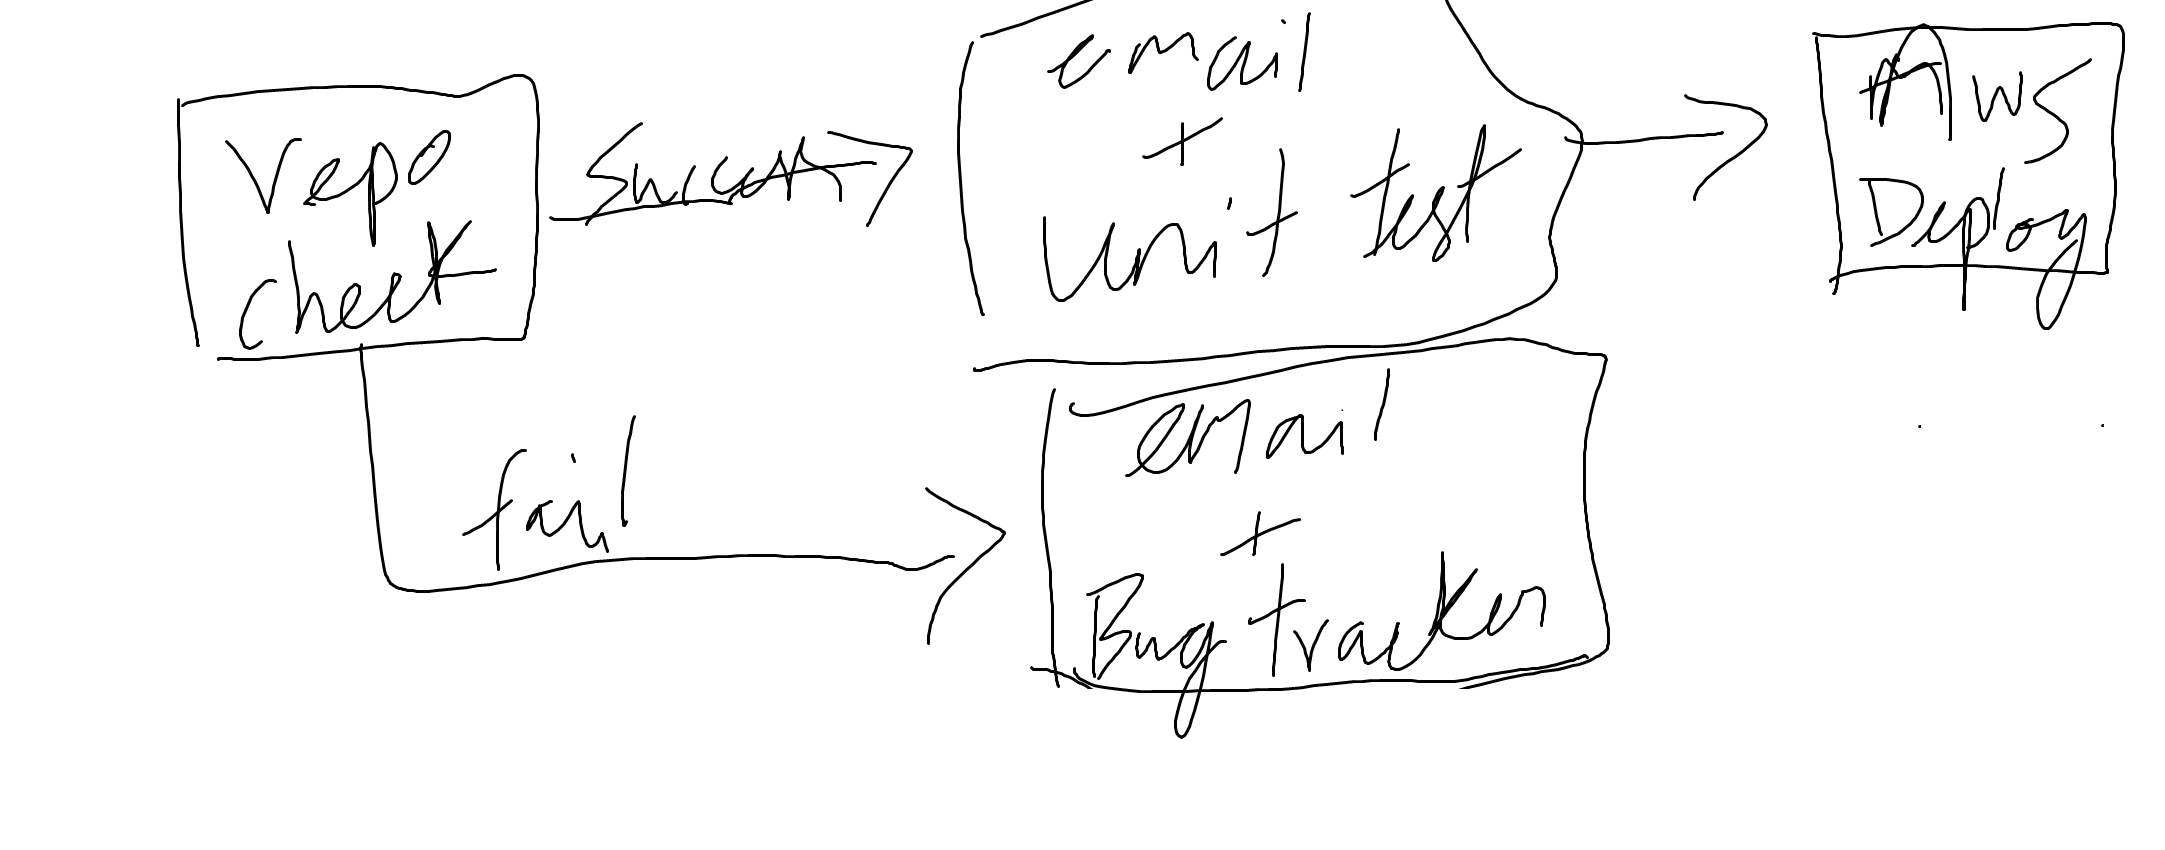 repo
check
Success
email
+
unit test
AWS
Deploy
fail
email
+
Bug tracker